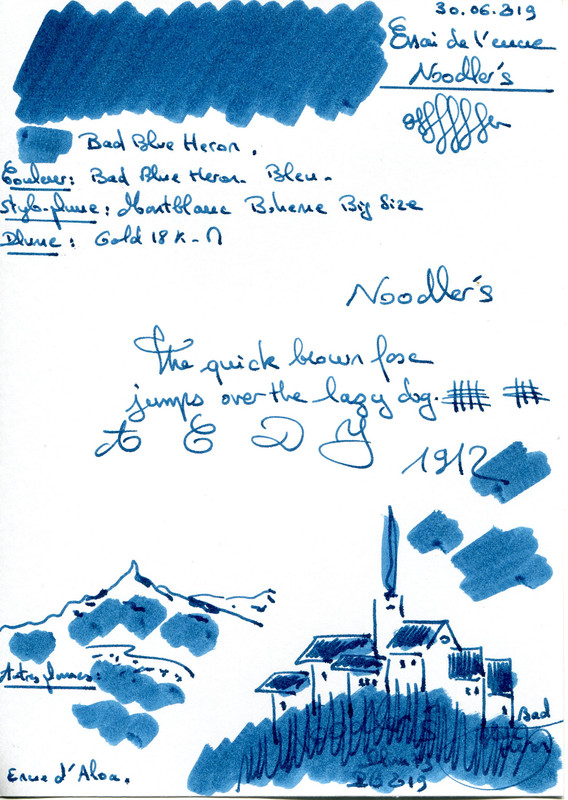 30.06.2019
Essai de l'encre
Noodler's
Bad Blue Heron.
Couleur: Bad Blue Heron - Bleu -
Stylo-plume: Montblanc Boheme Big Size
Plume: Gold 18 K - M
Noodler's
The quick brown foxe
jumps over the lazy dog.
A E D Y
1912
Autres plumes:
Bad
2019
Encre d'Aloa.